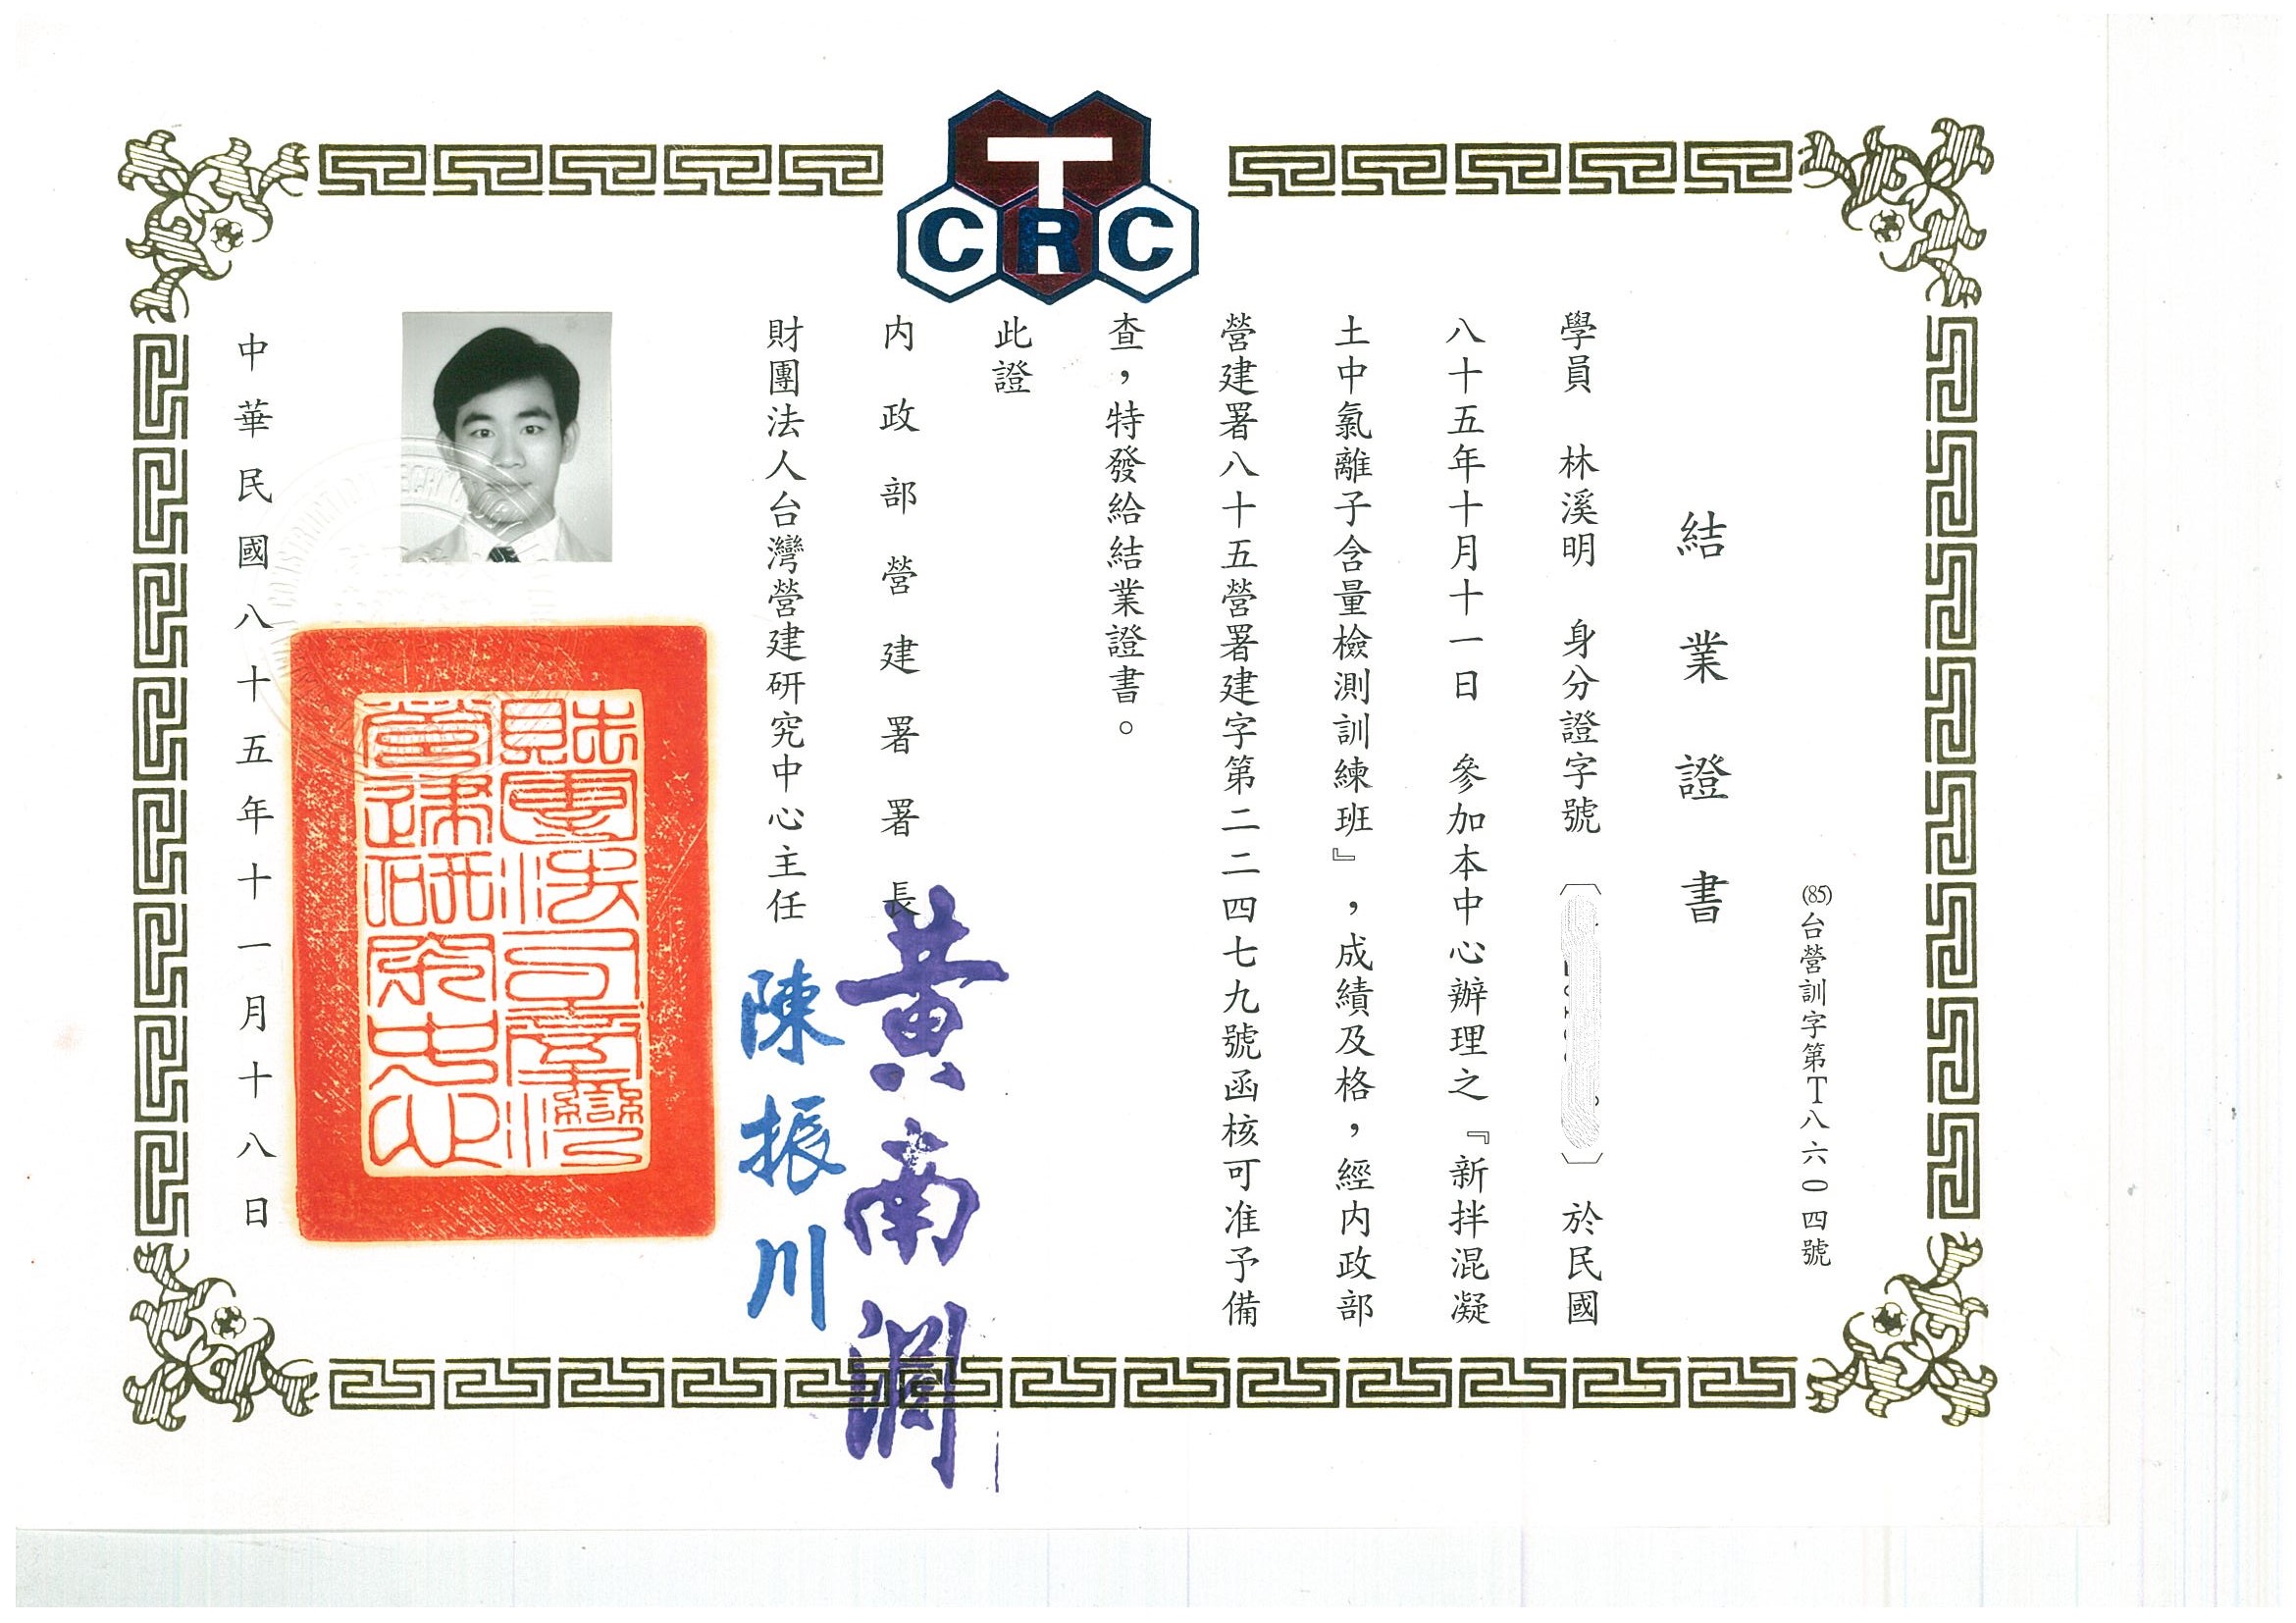 T
CRC
(85)台營訓字第T八六0四號
結業證書
學員 林溪明 身分證字號 〔 〕 於民國
八十五年十月十一日 參加本中心辦理之『新拌混凝
土中氯離子含量檢測訓練班』,成績及格,經內政部
營建署八十五營署建字第二二四七九號函核可准予備
查,特發給結業證書。
此證
內政部營建署署長 黃南淵
財團法人台灣營建研究中心主任 陳振川
財團法人台灣
營建研究中心
中華民國八十五年十一月十八日